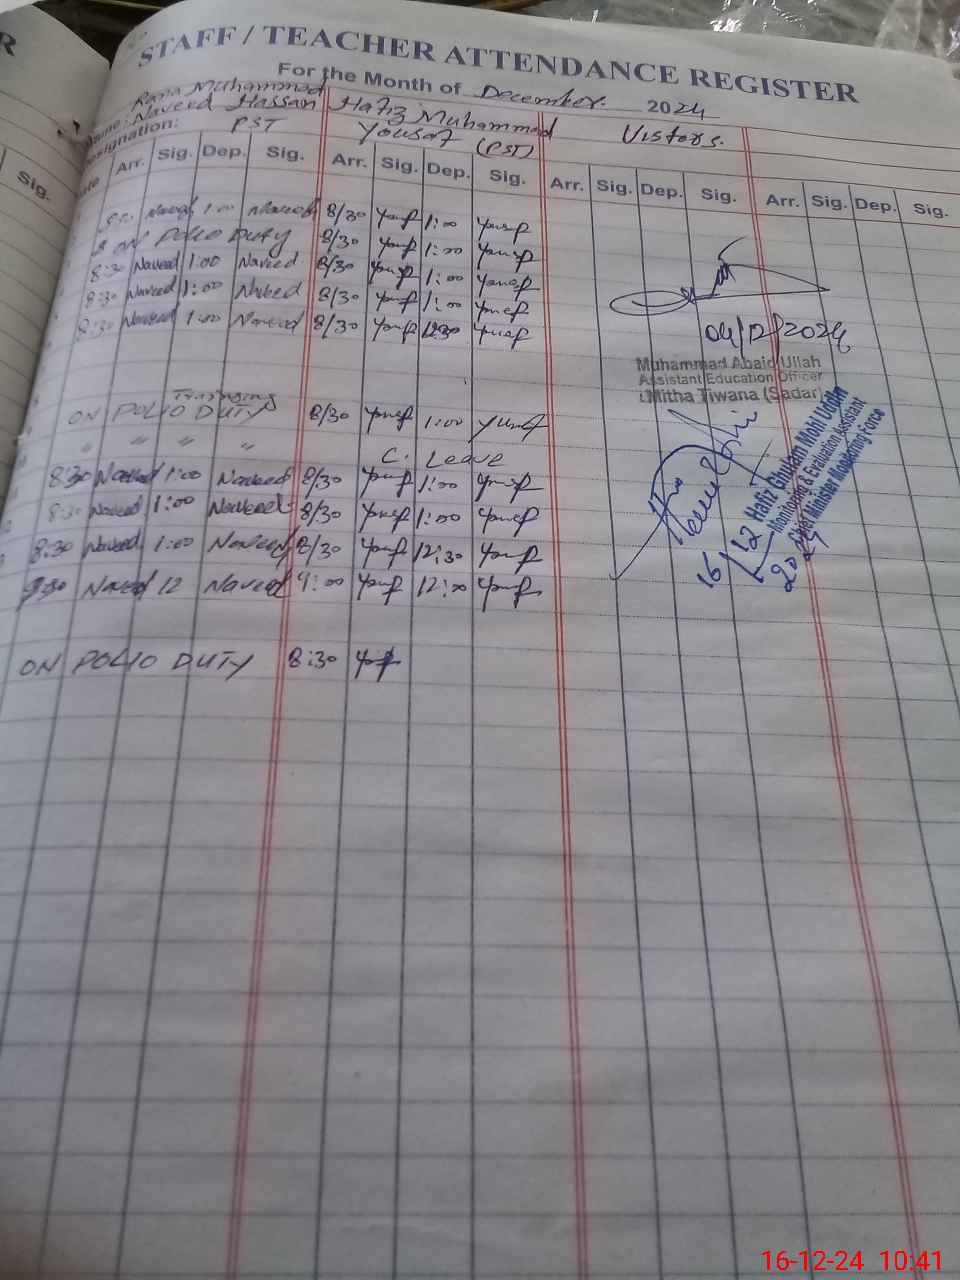 R
STAFF / TEACHER ATTENDANCE REGISTER
For the Month of December. 2024
Name: Rana Muhammad Naveed Hassan Hafiz Muhammad Yousaf (PST) Vistors.
Designation: PST
Sig. Arr. Sig. Dep. Sig. Arr. Sig. Dep. Sig. Arr. Sig. Dep. Sig. Arr. Sig. Dep. Sig.
Naveed 1:00 Naveed 8/30 Yousf 1:00 Yousf
ON POLIO DUTY 8/30 Yousf 1:00 Yousf
8:30 Naveed 1:00 Naveed 8/30 Yousf 1:00 Yousf
8:30 Naveed 1:00 Naveed 8/30 Yousf 1:00 Yousf
8:30 Naveed 1:00 Naveed 8/30 Yousf 12:30 Yousf
04/12/2024
Muhammad Abaid Ullah
Assistant Education Officer
Mitha Tiwana (Sadar)
ON POLIO DUTY 8/30 Yousf 1:00 Yousf
" " " " C. Leave
8:30 Naveed 1:00 Naveed 8/30 Yousf 1:00 Yousf
8:30 Naveed 1:00 Naveed 8/30 Yousf 1:00 Yousf
8:30 Naveed 1:00 Naveed 8/30 Yousf 12:30 Yousf
Naveed 12 Naveed 9:00 Yousf 12:00 Yousf
ON POLIO DUTY 8:30 Yousf
Hafiz Ghulam Mohi Uddin
Monitoring & Evaluation Assistant
Chief Minister Monitoring Force
16/12
2024
16-12-24 10:41